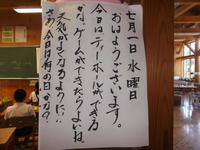 七月一日 水曜日
おはようございます。
今日は、ティーボールができる
かな。ゲームができたらよいね。
天気がよくなるように!!
さあ、今日は何の日かな?